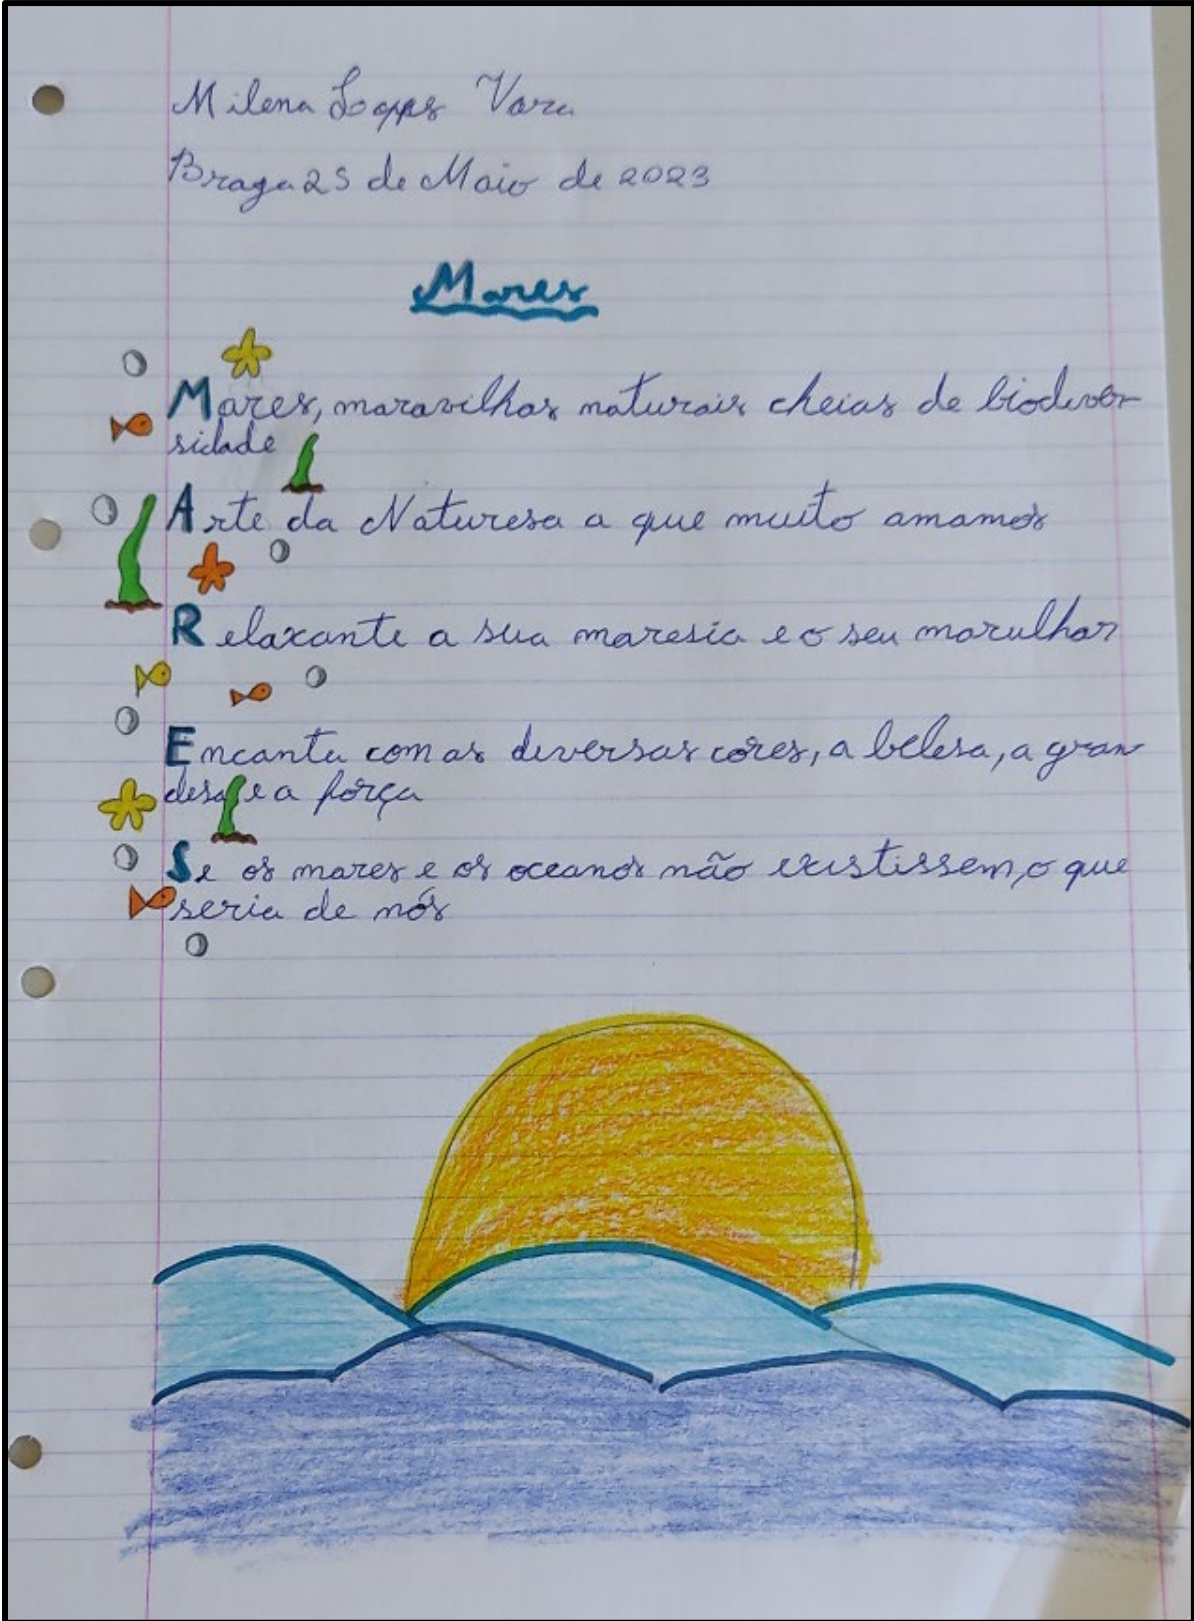 Milena Lopes Vara
Braga 25 de Maio de 2023
Mares
Mares, maravilhas naturais cheias de biodiver-
sidade
Arte da Naturesa a que muito amamos
Relaxante a sua maresia e o seu marulhar
Encanta com as diversas cores, a belesa, a gran
desa e a força
Se os mares e os oceanos não existissem, o que
seria de nós